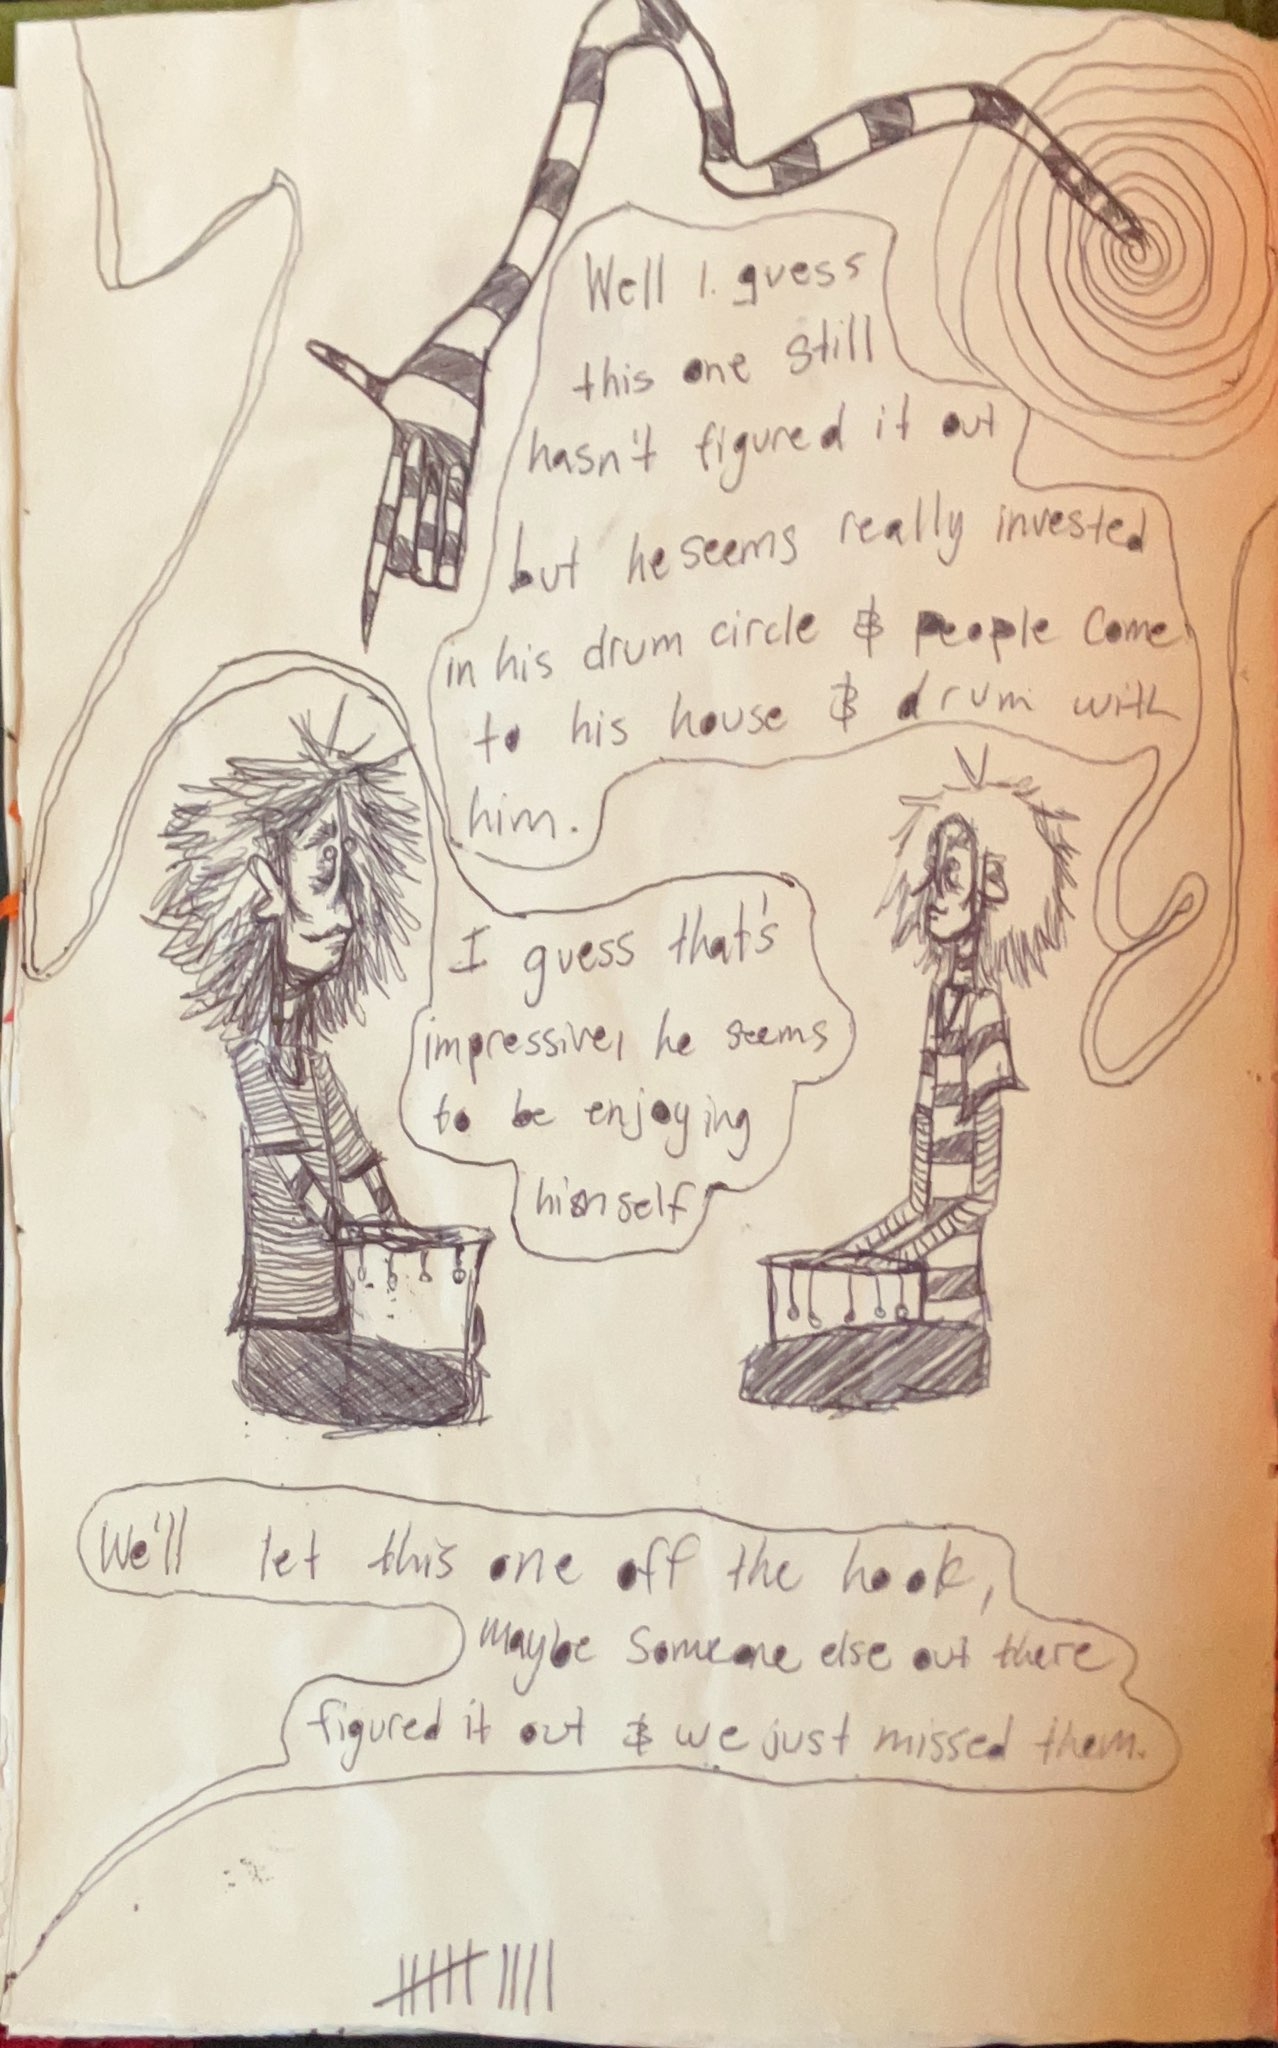 Well I guess
this one still
hasn't figured it out
but he seems really invested
in his drum circle & people come
to his house & drum with
him.
I guess that's
impressive, he seems
to be enjoying
himself
We'll let this one off the hook,
maybe someone else out there
figured it out & we just missed them.